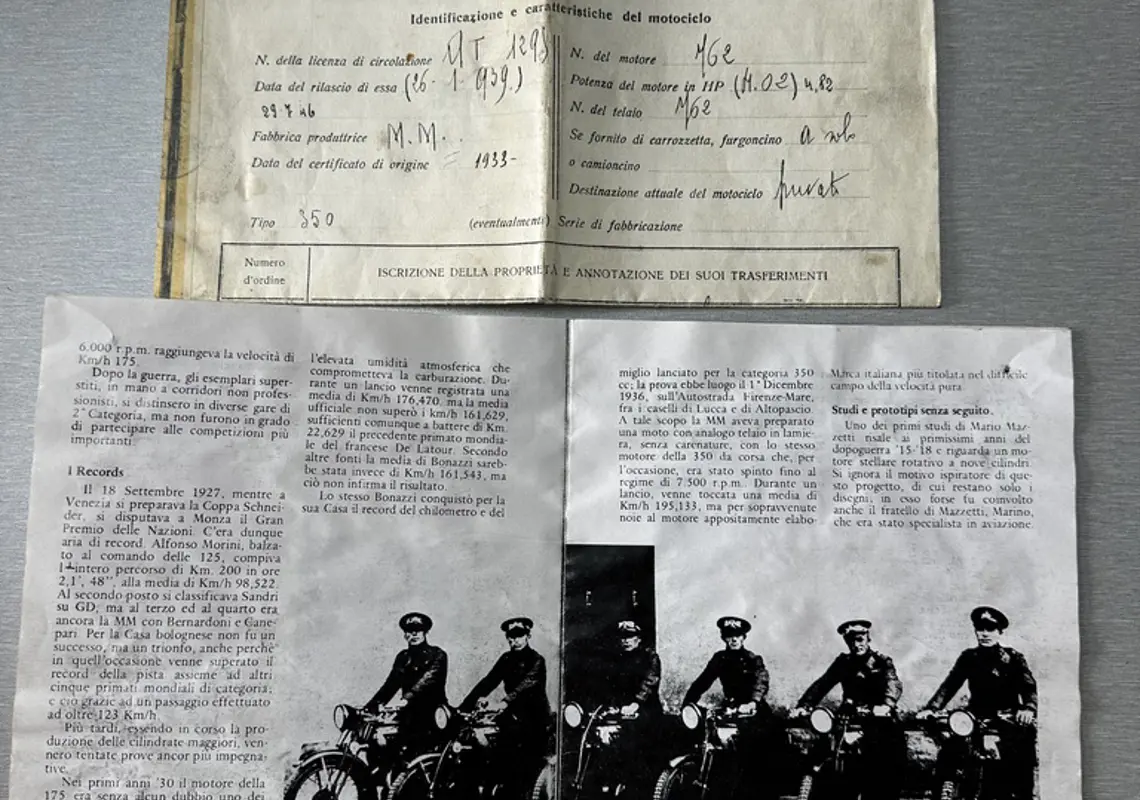 Identificazione e caratteristiche del motociclo
N. della licenza di circolazione
Data del rilascio di essa (26-1-939.)
29.7.46
Fabbrica produttrice M.M.
Data del certificato di origine = 1933-
Tipo 350
N. del motore M62
Potenza del motore in HP (H.02) 4,82
N. del telaio M62
Se fornito di carrozzetta, furgoncino a solo
o camioncino
Destinazione attuale del motociclo privato
(eventualmente) Serie di fabbricazione
Numero
d'ordine
ISCRIZIONE DELLA PROPRIETÀ E ANNOTAZIONE DEI SUOI TRASFERIMENTI
6.000 r.p.m. raggiungeva la velocità di
Km/h 175.
Dopo la guerra, gli esemplari super-
stiti, in mano a corridori non profes-
sionisti, si distinsero in diverse gare di
2ª Categoria, ma non furono in grado
di partecipare alle competizioni più
importanti.
I Records
Il 18 Settembre 1927, mentre a
Venezia si preparava la Coppa Schnei-
der, si disputava a Monza il Gran
Premio delle Nazioni. C'era dunque
aria di record. Alfonso Morini, balza-
to al comando delle 125, compiva
l'intero percorso di Km. 200 in ore
2,1', 48'', alla media di Km/h 98,522.
Al secondo posto si classificava Sandri
su GD, ma al terzo ed al quarto era
ancora la MM con Bernardoni e Cane-
pari. Per la Casa bolognese non fu un
successo, ma un trionfo, anche perchè
in quell'occasione venne superato il
record della pista assieme ad altri
cinque primati mondiali di categoria;
e ciò grazie ad un passaggio effettuato
ad oltre 123 Km/h.
Più tardi, essendo in corso la pro-
duzione delle cilindrate maggiori, ven-
nero tentate prove ancor più impegna-
tive.
Nei primi anni '30 il motore della
175 era senza alcun dubbio uno dei
l'elevata umidità atmosferica che
comprometteva la carburazione. Du-
rante un lancio venne registrata una
media di Km/h 176,470, ma la media
ufficiale non superò i km/h 161,629,
sufficienti comunque a battere di Km.
22,629 il precedente primato mondia-
le del francese De Latour. Secondo
altre fonti la media di Bonazzi sareb-
be stata invece di Km/h 161,543, ma
ciò non infirma il risultato.
Lo stesso Bonazzi conquistò per la
sua Casa il record del chilometro e del
miglio lanciato per la categoria 350
cc; la prova ebbe luogo il 1º Dicembre
1936, sull'Autostrada Firenze-Mare,
fra i caselli di Lucca e di Altopascio.
A tale scopo la MM aveva preparato
una moto con analogo telaio in lamie-
ra, senza carenature, con lo stesso
motore della 350 da corsa che, per
l'occasione, era stato spinto fino al
regime di 7.500 r.p.m. Durante un
lancio, venne toccata una media di
Km/h 195,133, ma per sopravvenute
noie al motore appositamente elabo-
Marca italiana più titolata nel difficile
campo della velocità pura.
Studi e prototipi senza seguito.
Uno dei primi studi di Mario Maz-
zetti risale ai primissimi anni del
dopoguerra '15-'18 e riguarda un mo-
tore stellare rotativo a nove cilindri.
Si ignora il motivo ispiratore di que-
sto progetto, di cui restano solo i
disegni; in esso forse fu coinvolto
anche il fratello di Mazzetti, Marino,
che era stato specialista in aviazione.